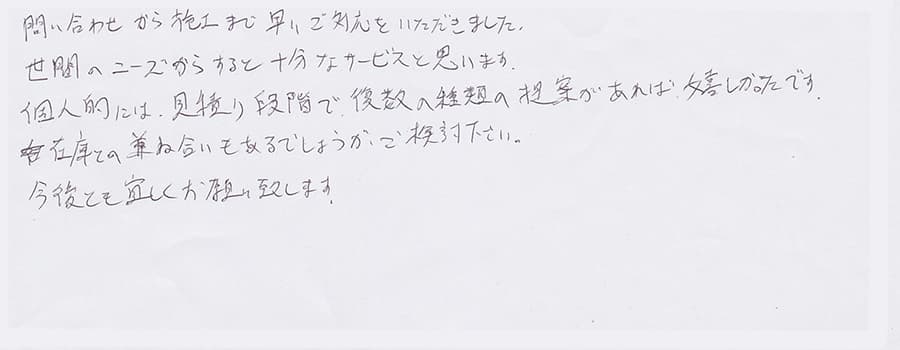 問い合わせから施工まで早いご対応をいただきました.
世間のニーズからすると十分なサービスと思います.
個人的には、見積り段階で、復数の種類の提案があれば、嬉しかったです.
在庫との兼ね合いもあるでしょうが、ご検討下さい。
今後とも宜しくお願い致します.